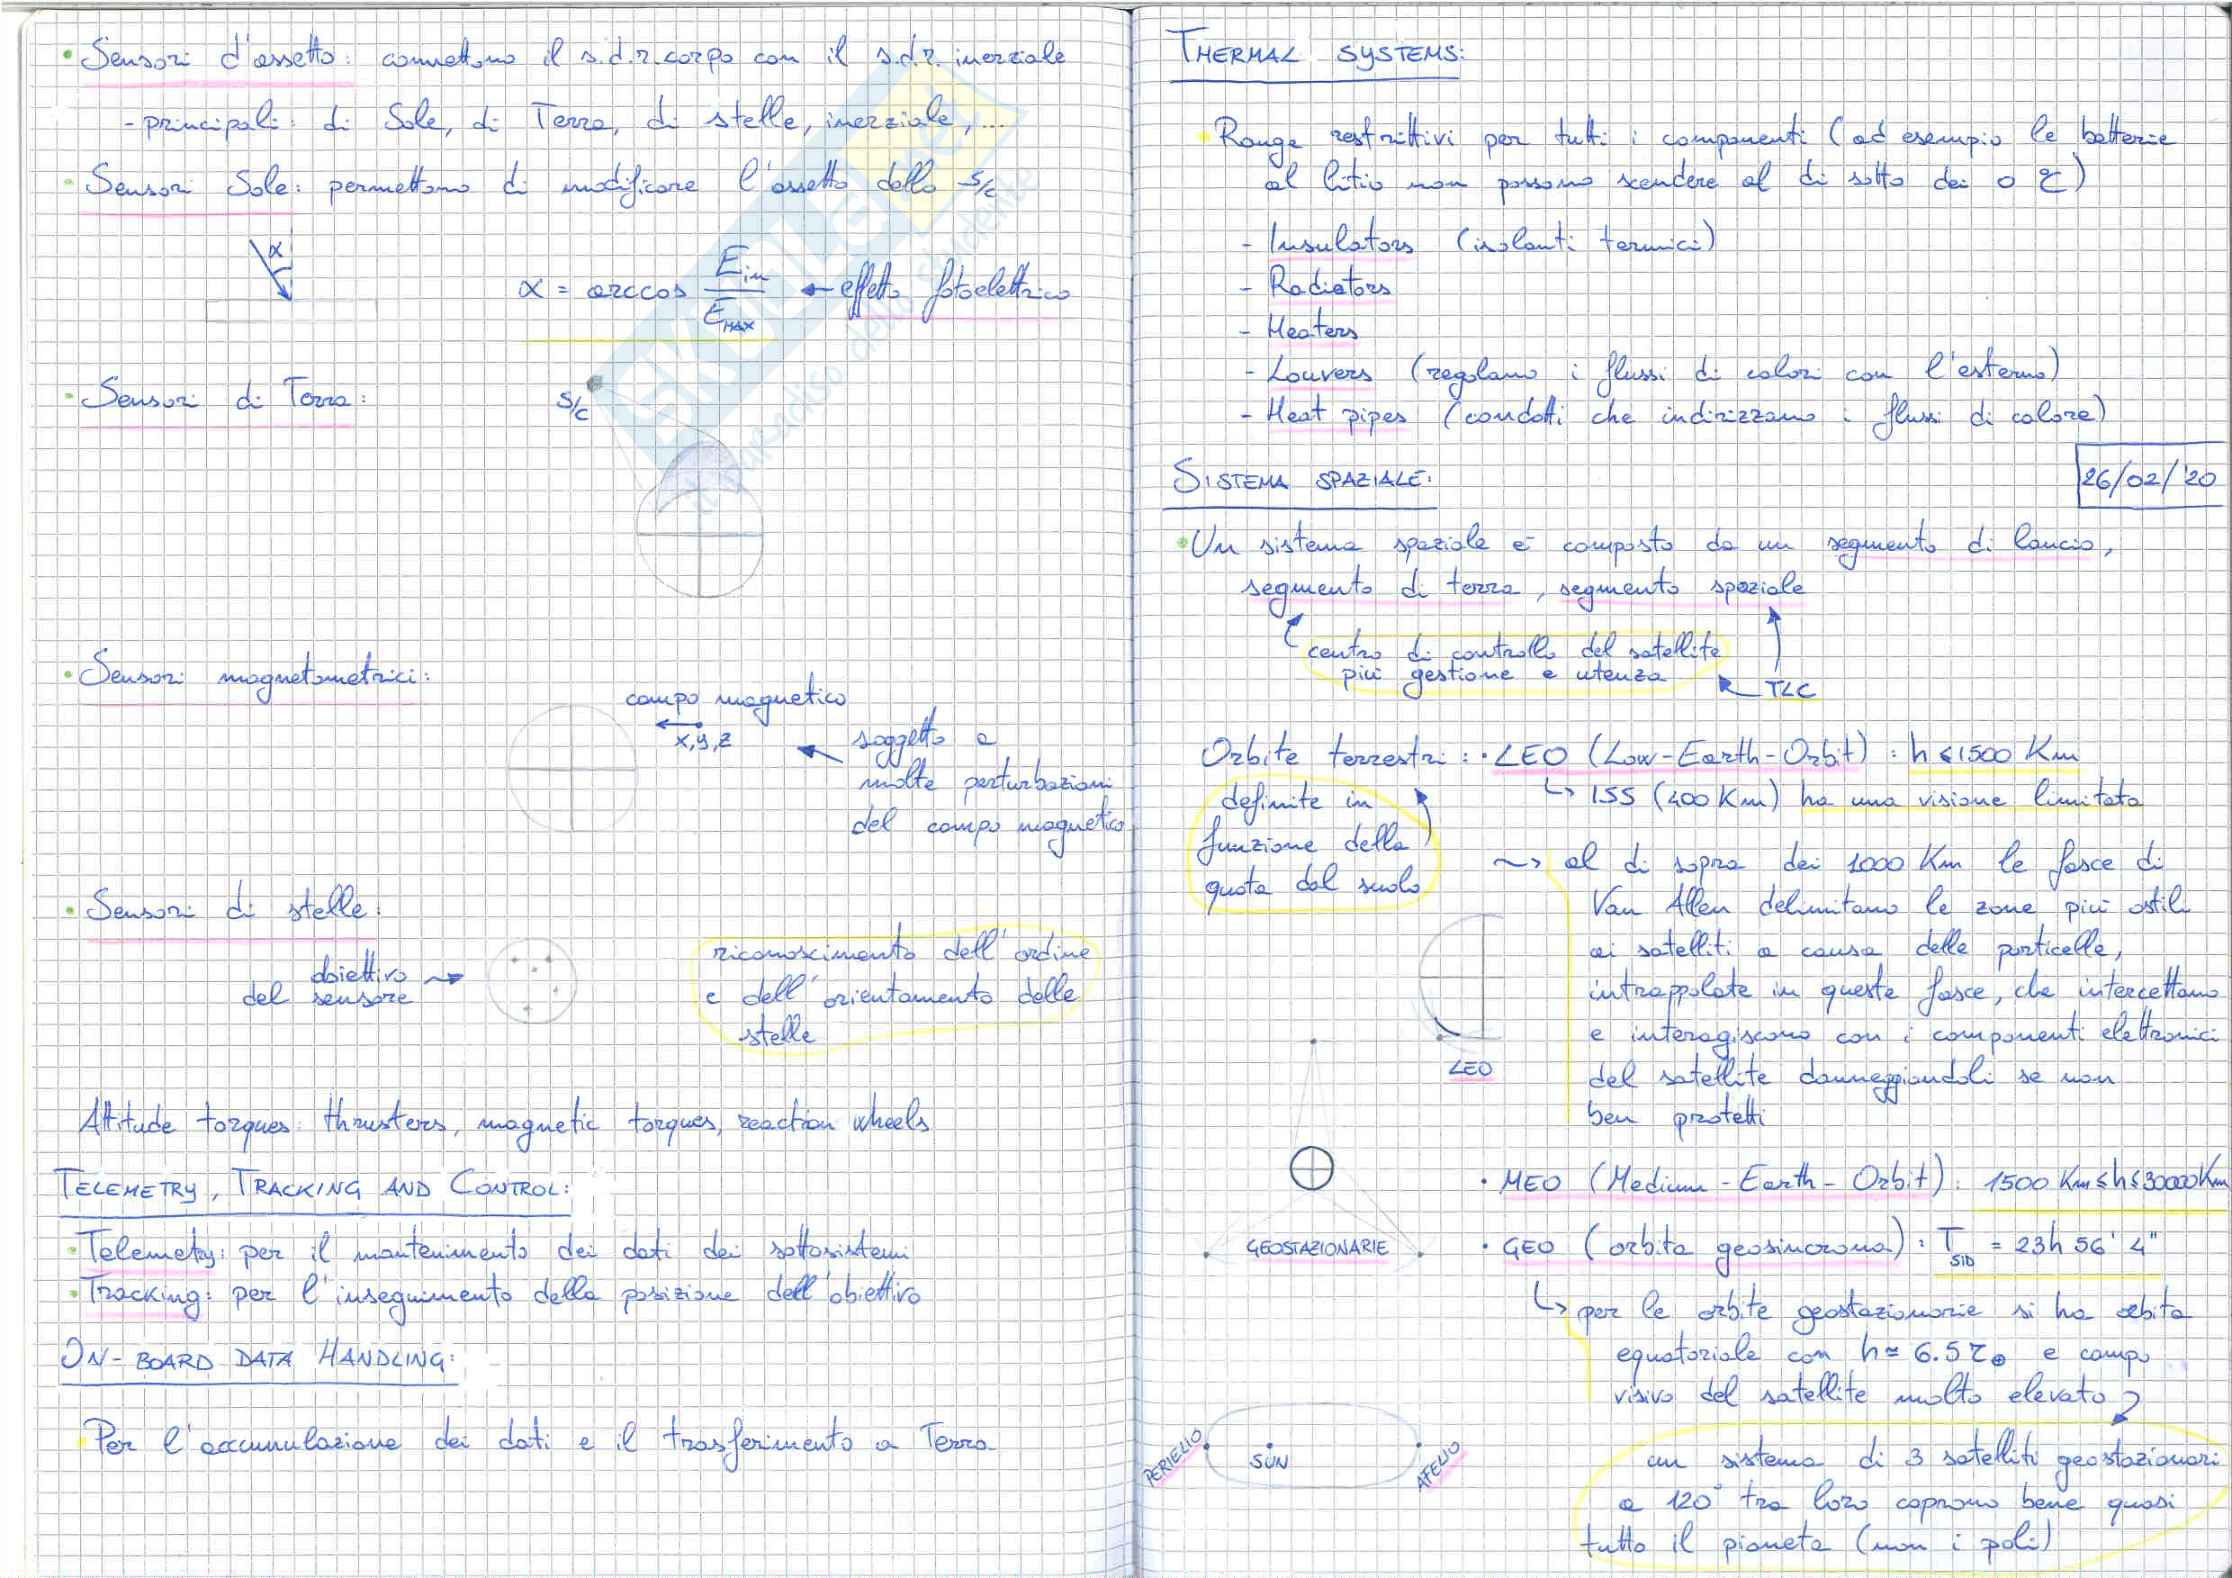 • Sensori d'assetto: connettono il s.d.r. corpo con il s.d.r. inerziale
- principali: di Sole, di Terra, di stelle, inerziale, ...
• Sensori Sole: permettono di modificare l'assetto dello S/c
α
α = arccos E_in / E_MAX ← effetto fotoelettrico
• Sensori di Terra:
S/c
• Sensori magnetometrici:
campo magnetico
x,y,z
soggetto a
molte perturbazioni
del campo magnetico
• Sensori di stelle:
obiettivo
del sensore
riconoscimento dell'ordine
e dell'orientamento delle
stelle
Attitude torques: thrusters, magnetic torques, reaction wheels
TELEMETRY, TRACKING AND CONTROL:
• Telemetry: per il mantenimento dei dati dei sottosistemi
• Tracking: per l'inseguimento della posizione dell'obiettivo
ON-BOARD DATA HANDLING:
• Per l'accumulazione dei dati e il trasferimento a Terra
THERMAL SYSTEMS:
• Range restrittivi per tutti i componenti (ad esempio le batterie
al litio non possono scendere al di sotto dei 0 °C)
- Insulators (isolanti termici)
- Radiators
- Heaters
- Louvers (regolano i flussi di calori con l'esterno)
- Heat pipes (condotti che indirizzano i flussi di calore)
SISTEMA SPAZIALE:
26/02/'20
• Un sistema spaziale è composto da un segmento di lancio,
segmento di terra, segmento spaziale
centro di controllo del satellite
più gestione e utenza
TLC
Orbite terrestri: • LEO (Low-Earth-Orbit): h ≤ 1500 Km
↳ ISS (400 Km) ha una visione limitata
definite in
funzione della
quota dal suolo
~> al di sopra dei 1000 Km le fasce di
Van Allen delimitano le zone più ostili
ai satelliti a causa delle particelle,
intrappolate in queste fasce, che intercettano
e interagiscono con i componenti elettronici
del satellite danneggiandoli se non
ben protetti
LEO
• MEO (Medium-Earth-Orbit): 1500 Km ≤ h ≤ 30000 Km
GEOSTAZIONARIE
• GEO (orbita geosincrona): T_SID = 23h 56' 4"
↳ per le orbite geostazionarie si ha orbita
equatoriale con h ≃ 6.5 r⊕ e campo
visivo del satellite molto elevato
PERIELIO
SUN
AFELIO
un sistema di 3 satelliti geostazionari
a 120° tra loro coprono bene quasi
tutto il pianeta (non i poli)
SKUOLA.net
il paradiso dello studente